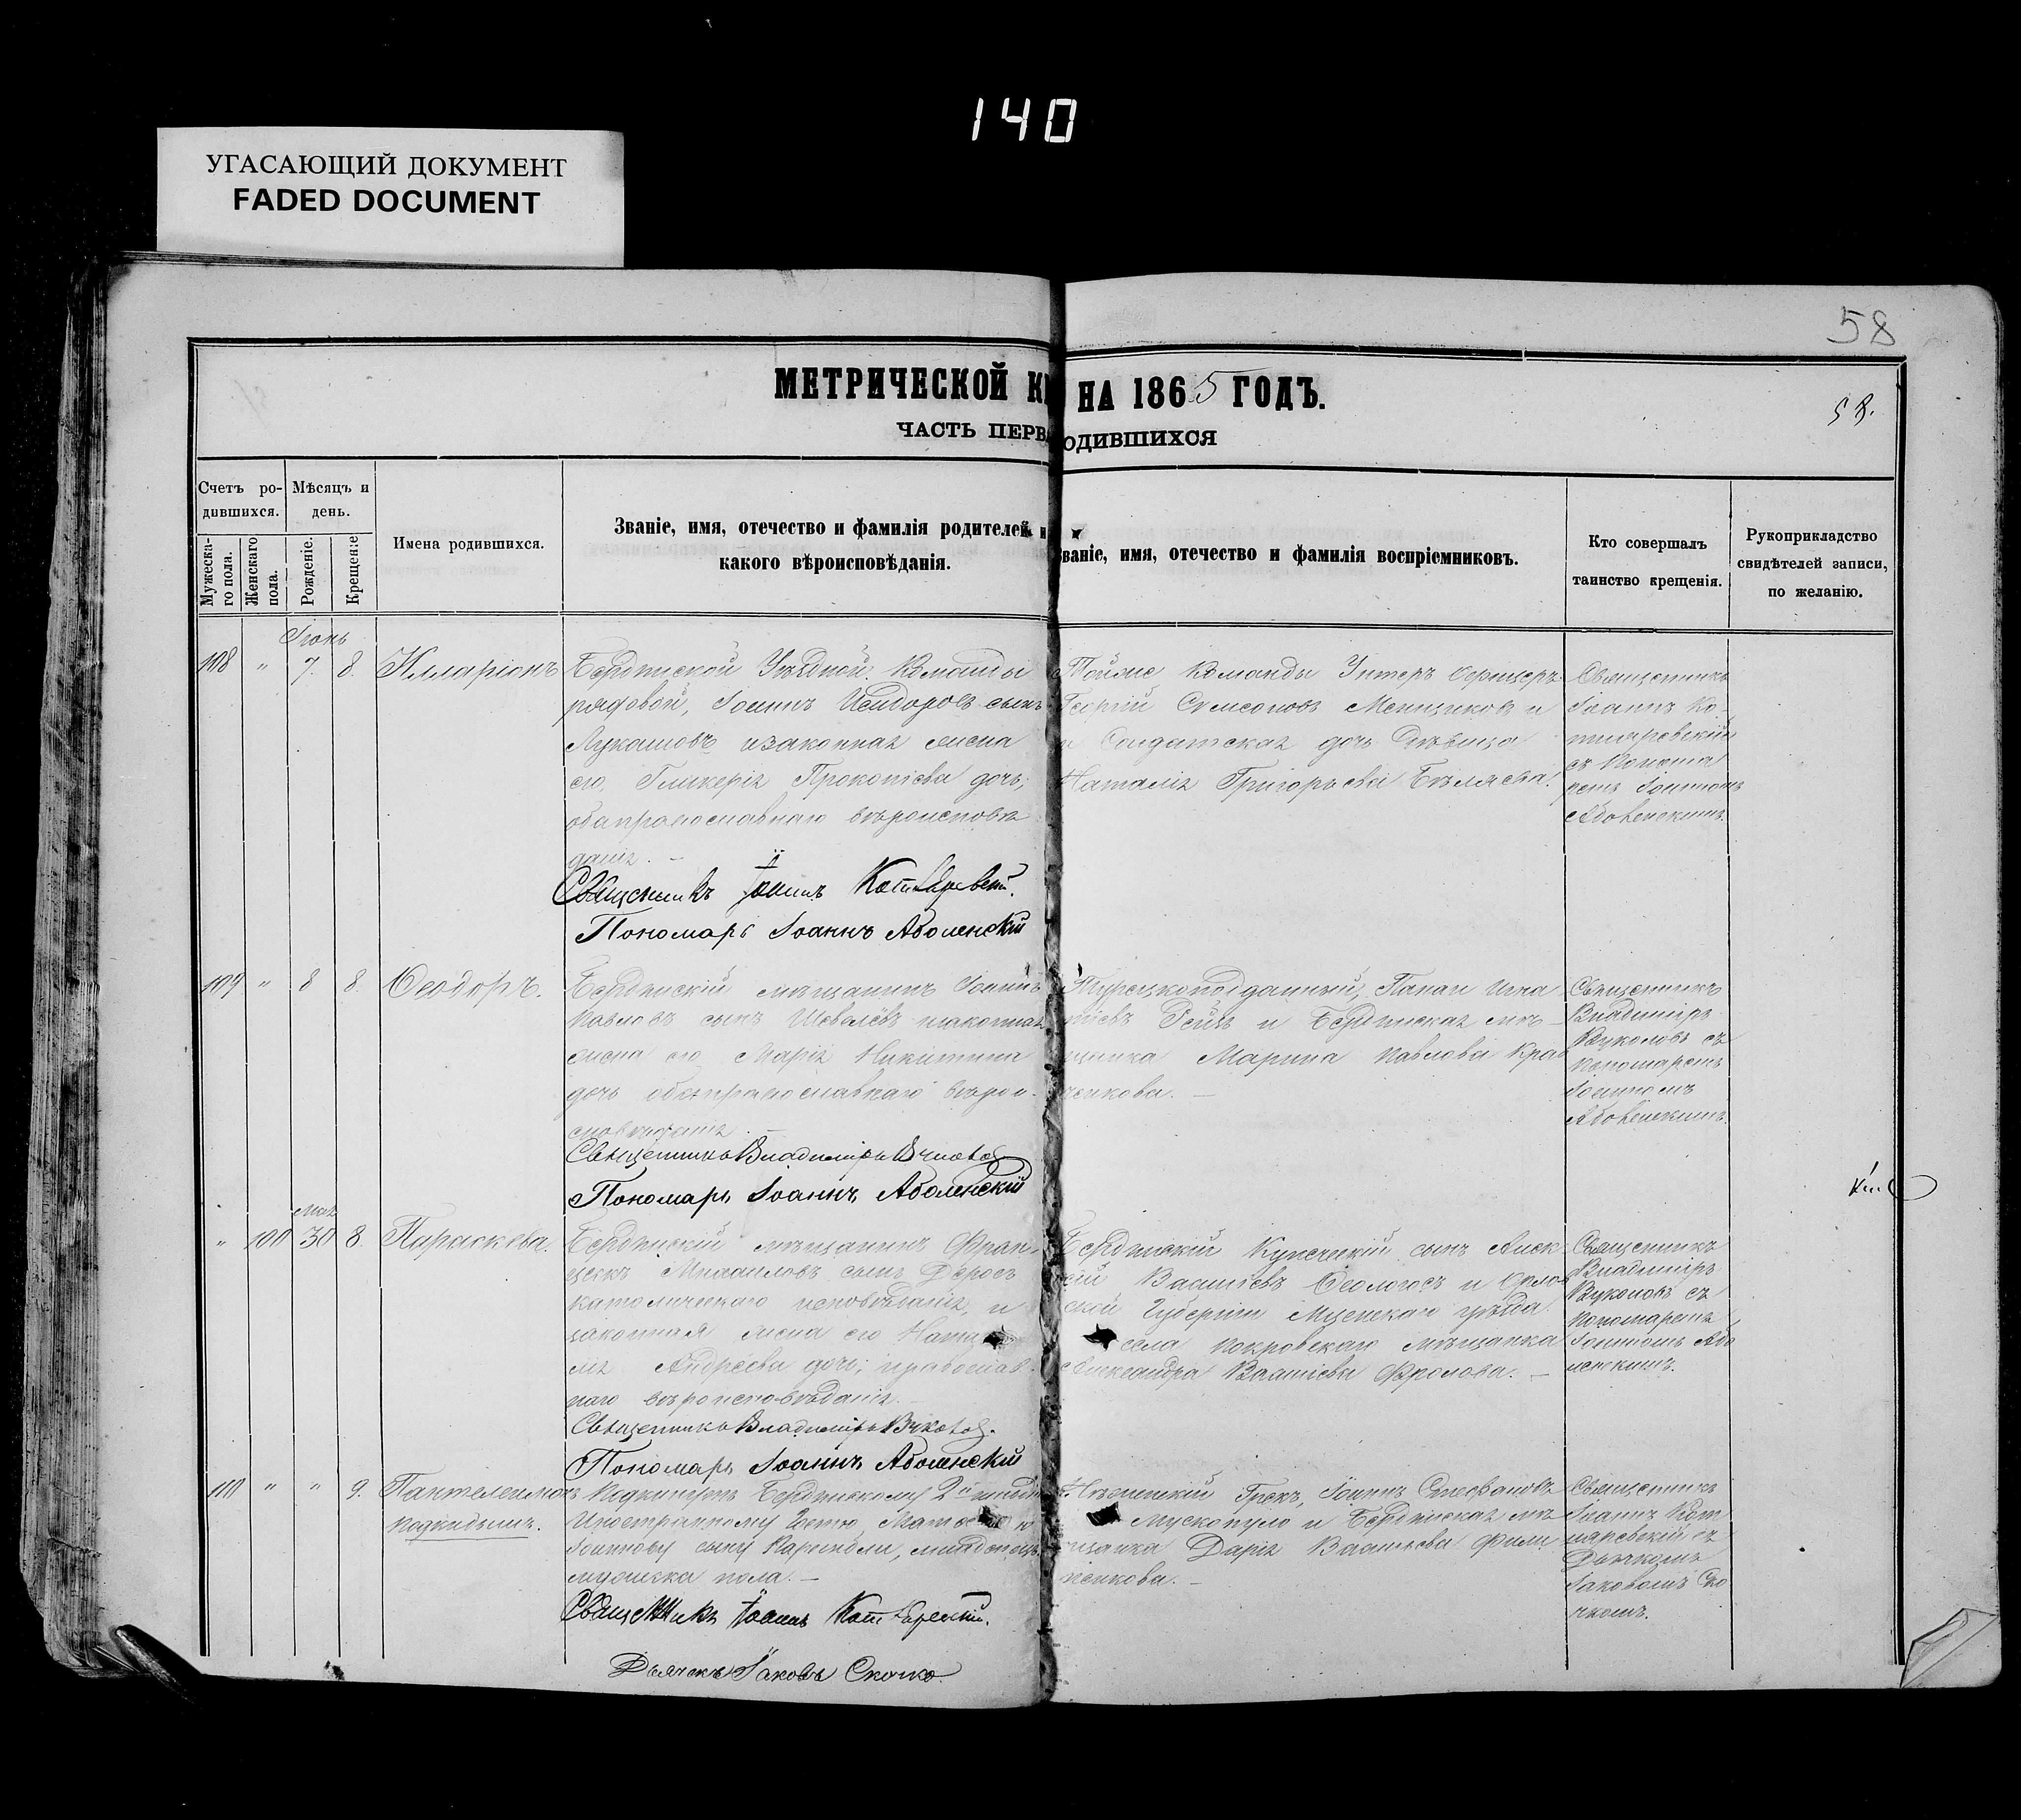 140
УГАСАЮЩИЙ ДОКУМЕНТ
FADED DOCUMENT
58
МЕТРИЧЕСКОЙ К НА 1865 ГОДЪ.
58.
ЧАСТЬ ПЕРВ ОДИВШИХСЯ
Счетъ родившихся.
Мужескаго пола.
Женскаго пола.
Мѣсяцъ и день.
Рожденіе.
Крещеніе
Имена родившихся.
Званіе, имя, отечество и фамилія родителей и
какого вѣроисповѣданія.
Званіе, имя, отечество и фамилія воспріемниковъ.
Кто совершалъ
таинство крещенія.
Рукоприкладство
свидѣтелей записи,
по желанію.
Іюнь
108 " 7. 8. Илларіонъ
Бердянской Уѣздной Команды
рядовой, Іоаннъ Исидоровъ сынъ
Лукашовъ изаконная жена
его, Гликерія Прокопіева дочь;
оба православнаго вѣроисповѣ
данія. —
Священникъ Іоаннъ
Пономарь Іоаннъ Аболенскій
Тойже Команды Унтеръ Офицеръ
Георгій Семеоновъ Менщиковъ и
и Солдатская дочь Дѣвица
Наталія Григорьева Бѣляева.
Священникъ
Іоаннъ Ко-
тляревскій
съ Понома
ремъ Іоанномъ
Аболенскимъ.
109 " 8 8. Ѳеодоръ.
Бердянскій мѣщанинъ Іоаннъ
Павловъ сынъ Шевелёвъ изаконная
жена его Марія Никитина
дочь оба православнаго вѣрои-
сповѣданія. —
Священникъ Владиміръ Вуколовъ
Пономарь Іоаннъ Аболенскій
Турецкоподданный, Папаи Игна
тіевъ и Бердянская мѣ-
щанка Марина Павлова Крав
ченкова. —
Священникъ
Владиміръ
Вуколовъ съ
Пономаремъ
Іоанномъ
Аболенскимъ.
Мая
" 100 30 8. Параскева.
Бердянскій мѣщанинъ Фран-
цискъ Михаиловъ сынъ
католическаго исповѣданія, и
законная жена его Ната
лія Андреева дочь; православ-
наго вѣроисповѣданія.
Священникъ Владиміръ Вуколовъ.
Пономарь Іоаннъ Аболенскій
Бердянскій Купеческій сынъ Алек
сѣй Василіевъ Ѳеологосъ и Орлов
ской Губерніи Мценскаго уѣзда
села Покровскаго мѣщанка
Александра Василіева Фролова. —
Священникъ
Владиміръ
Вуколовъ съ
Пономаремъ
Іоанномъ Або
ленскимъ.
110 " " 9. Пантелеимонъ
подкидышъ.
Подкинутъ Бердянскому 2й гильдіи
Иностранному Гостю
Іоаннову сыну, младенецъ
мужеска пола. —
Священникъ Іоаннъ
Дьячекъ Іаковъ Скочко.
Нѣжинскій Грекъ, Іоаннъ Стефановъ
Мускопуло и Бердянская мѣ
щанка Дарія Василіева Фили
пенкова. —
Священникъ
Іоаннъ Кот
ляревскій съ
Дьячкомъ
Іаковомъ Ско
чкомъ.